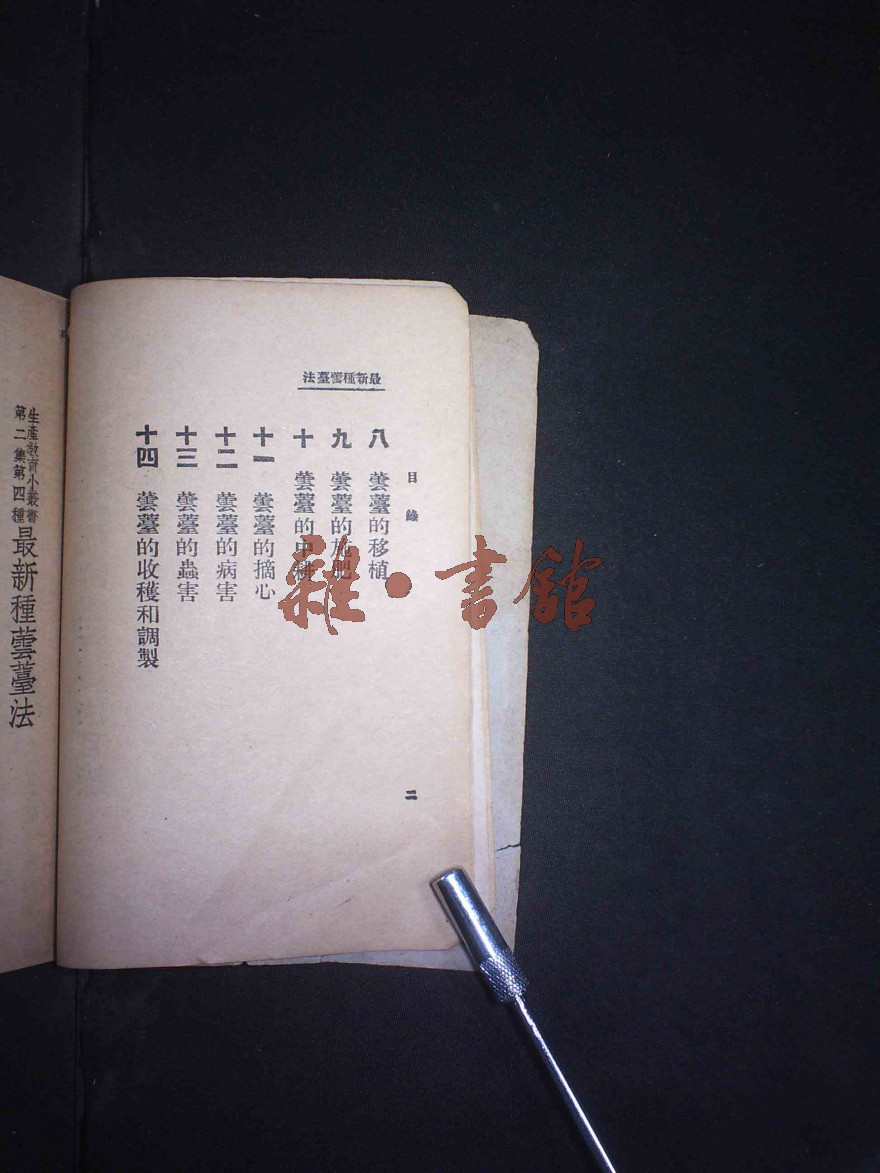 最新種蕓薹法
目錄
八 蕓薹的移植
九 蕓薹的施肥
十 蕓薹的中耕
十一 蕓薹的摘心
十二 蕓薹的病害
十三 蕓薹的蟲害
十四 蕓薹的收穫和調製
二
生產教育小叢書
第二集第四種
最新種蕓薹法
雜·書館